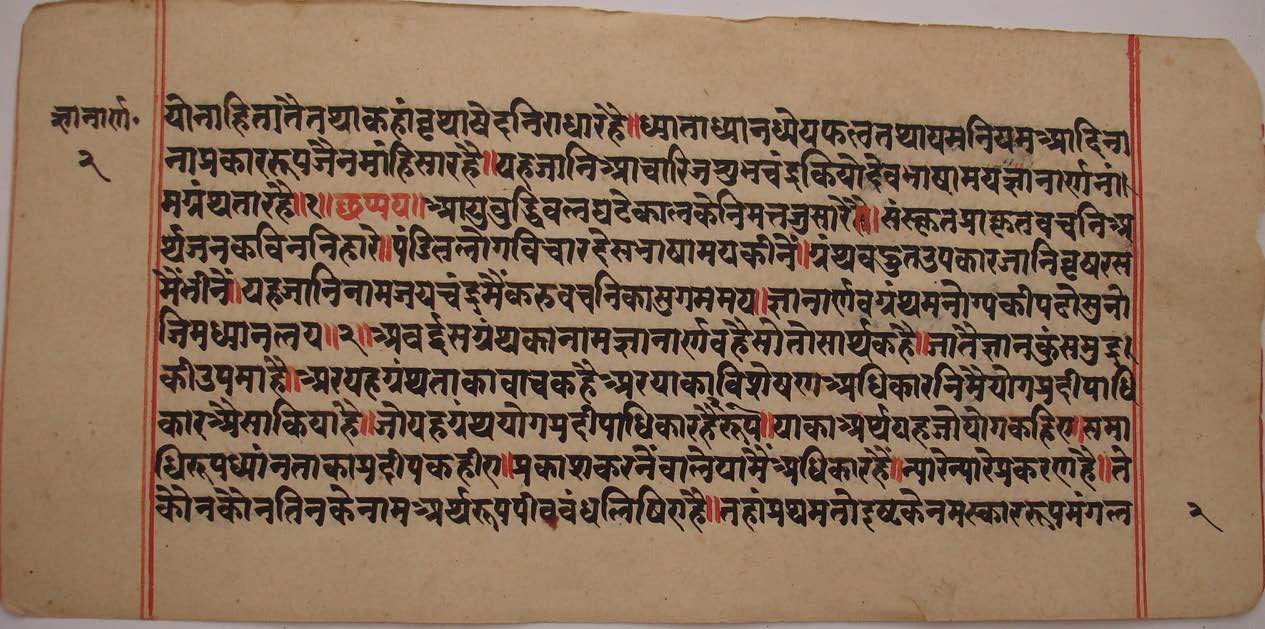 ज्ञानार्ण॰
२
योनाहितातैतथाकहांवृथाषेदनिराधारहै॥ध्याताध्यानध्येयफलतथायमनियमआदिना
नाप्रकाररूपजैनमांहिसारहै॥यहजानिआचारिजशुभचंद्रकियोदेवभाषामयज्ञानार्णनां॥
मग्रंथतारहै॥१॥छप्पय॥आयुबुद्धिबलघटेकालकेनिमतजुसारै॥संस्कृतप्राकृतवचनिअ
र्थजनकविननिहारे॥पंडितलोगविचारदेसभाषामयकीनैं॥ग्रंथबहुतउपकारजानिवृषरस
मैंभीनैं॥यहजानिनामजयचंद्रमैंकरुवचनिकासुगममय॥ज्ञानार्णवग्रंथमनोग्यकीपढोसुनो
जिमध्यानलय॥२॥अबईसग्रंथकानामज्ञानार्णवहैसोतोसार्थकहै॥जातैज्ञानकुंसमुद्र
कीउपमाहै॥अरयहग्रंथताकावाचकहैअरयाकाविशेषणअधिकारनिमैयोगप्रदीपाधि
कारअैसाकियाहै॥जोयहग्रंथयोगप्रदीपाधिकारहैरूप॥याकाअर्थयहजोयोगकहिए।समा
धिरूपध्यांनताकाप्रदीपकहीए॥प्रकाशकरनेंवालेयामैंअधिकारहै॥न्यारेन्यारेप्रकरणहै॥ते
कौनकौनतिनकेनामअर्थरूपपीठबंधलिषिएहै॥तहांप्रथमतोइष्टकेनमस्काररूपमंगल
२